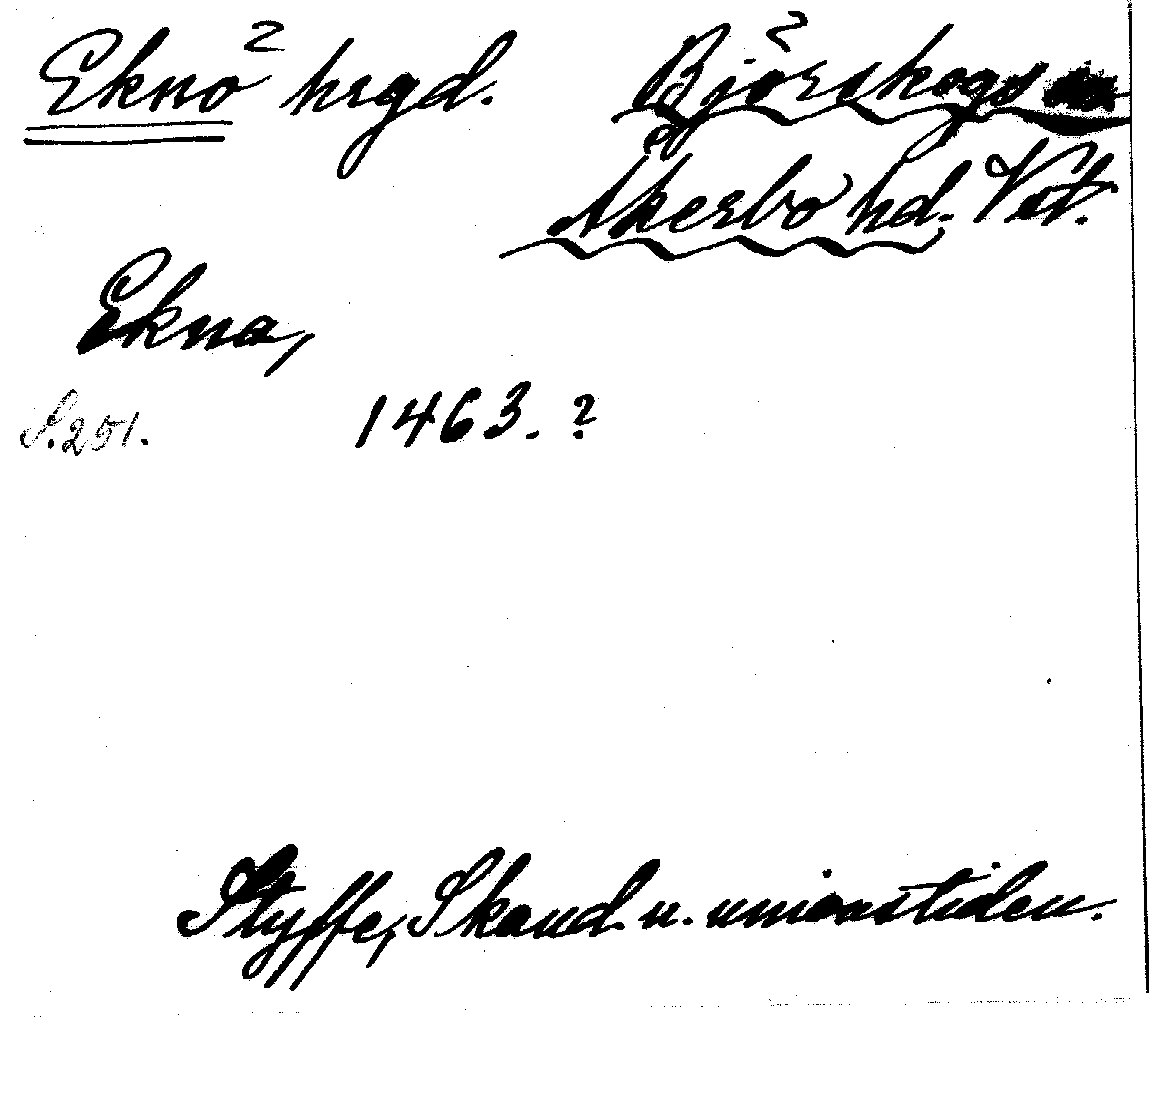 Eknö hrgd. Björskogs
Åkerbo hd. Vst.
Ekna,
S. 251. 1463. ?
Styffe, Skand. u. unionstiden.